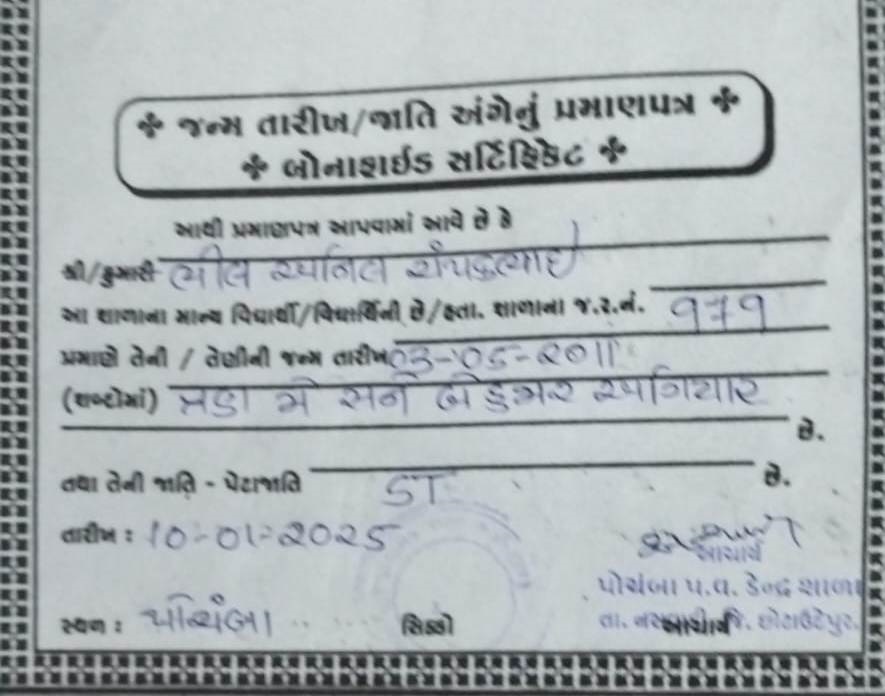 જન્મ તારીખ/જાતિ અંગેનું પ્રમાણપત્ર
બોનાફાઈડ સર્ટિફિકેટ
આથી પ્રમાણપત્ર આપવામાં આવે છે કે
શ્રી/કુમારી ભીલ અનિલ
આ શાળાના માન્ય વિદ્યાર્થી/વિદ્યાર્થિની છે/હતા. શાળાના જ.ર.નં. ૧૭૧
પ્રમાણે તેની / તેણીની જન્મ તારીખ 03-05-2011
(શબ્દોમાં) ત્રણ મે સને બે હજાર અગિયાર
છે.
તથા તેની જાતિ - પેટાજાતિ ST છે.
તારીખ : 10-01-2025
આચાર્ય
પોચંબા પ.વ. કેન્દ્ર શાળા
સ્થળ : પોચંબા સિક્કો
તા. આચાર્ય જિ. છોટાઉદેપુર.